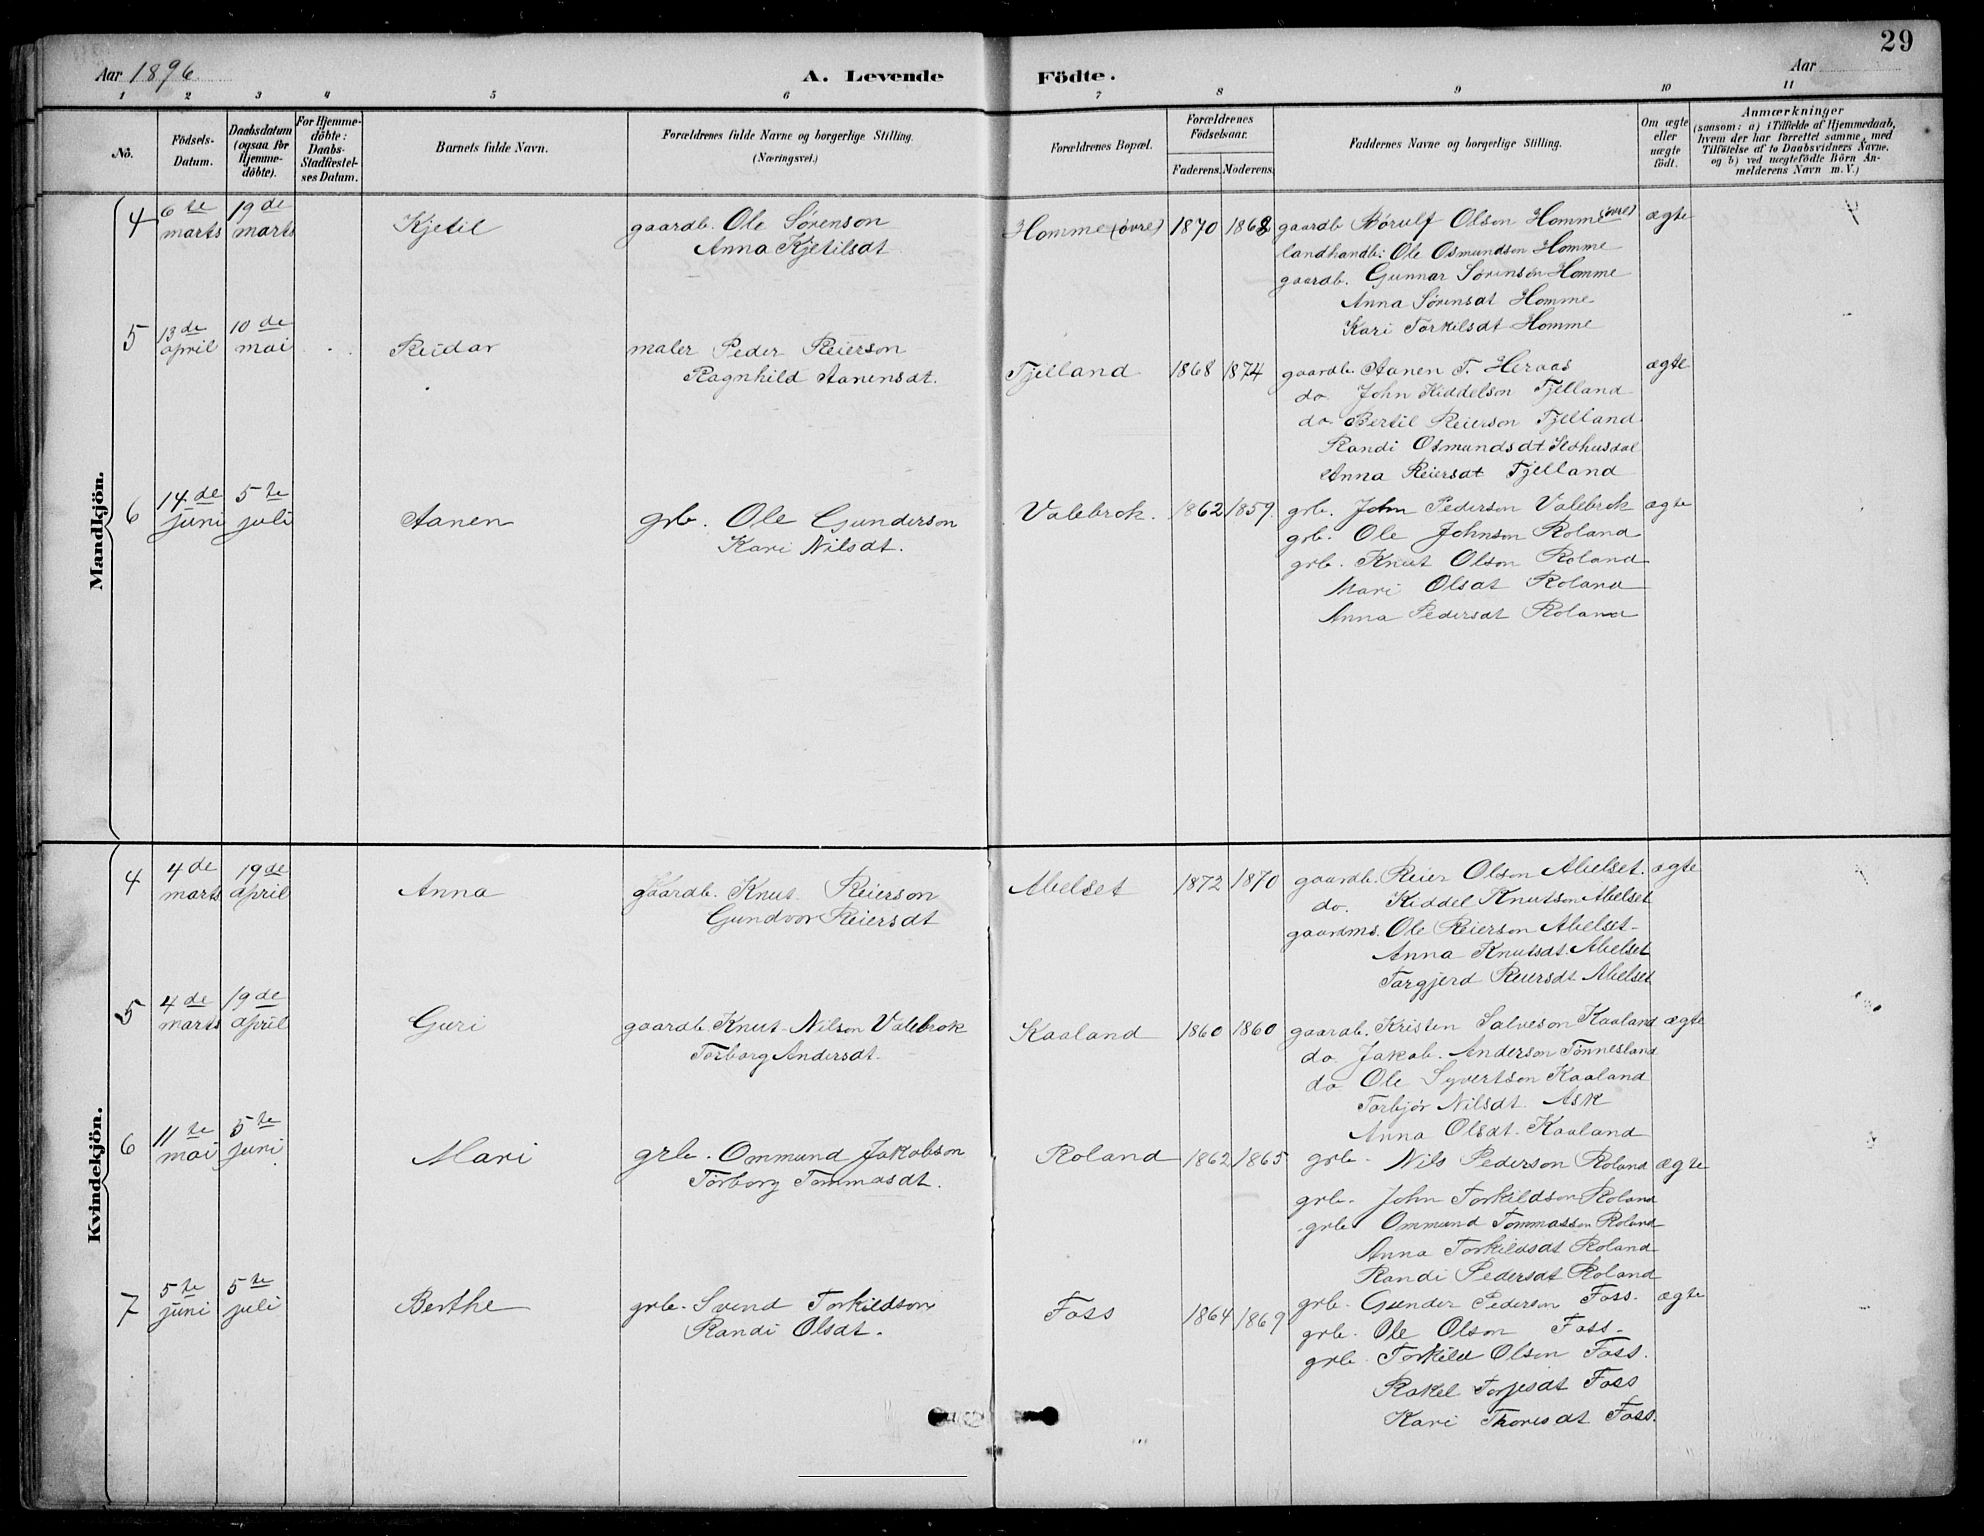 29
Aar 1896. A. Levende Födte. Aar
1 2 3 4 5 6 7 8 9 10 11
No.
Födsels-Datum.
Daabsdatum (ogsaa for Hjemme-döbte).
For Hjemme-döbte: Daabs-Stadfæstel-ses Datum.
Barnets fulde Navn.
Forældrenes fulde Navne og borgerlige Stilling.
(Næringsvei.)
Forældrenes Bopæl.
Forældrenes Födselsaar.
Faderens. Moderens.
Faddernes Navne og borgerlige Stilling.
Om ægte eller uægte födt.
Anmærkninger
(saasom: a) i Tilfælde af Hjemmedaab,
hvem der har forrettet samme, med
Tilföielse af to Daabsvidners Navne,
og b) ved uægtefödte Börn An-
melderens Navn m. V.)
Mandkjön.
4 6te marts 19de marts Kjetil gaardb. Ole Sørenson Homme (øvre) 1870 1868 gaardb Børulf Olson Homme (øvre) ægte
Anna Kjetilsdt landhandl: Ole Osmundsen Homme
gaardb. Gunnar Sørenson Homme
Anna Sørensdt Homme
Kari Torkilsdt Homme
5 13de april 10de mai Reidar maler Peder Reierson Tjelland 1868 1874 gaardb. Aanen T. Heraas ægte
Ragnhild Aanensdt. do John Kiddelson Tjelland
do Bertil Reierson Tjelland
Randi Osmundsdt
Anna Reiersdt Tjelland
6 14de juni 5te juli Aanen grb. Ole Gunderson Valebrok. 1862 1859. grb. John Pederson Valebrok ægte
Kari Nilsdt. grb. Ole Johnson Roland
grb. Knut Olson Roland
Mari Olsdt Roland
Anna Pedersdt Roland
Kvindekjön.
4 4de marts 19de april Anna gaardb. Knut Reierson Abelset 1872 1870 gaardb. Reier Olson Abelset. ægte
Gundvor Reiersdt do. Kiddel Knutson Abelset
gaardms. Ole Reierson Abelset
Anna Knutsdt. Abelset
Targjerd Reiersdt Abelset
5 4de marts 19de april Guri gaardb. Knut Nilson Valebrok Kaaland 1860 1860 gaardb. Kristen Salveson Kaaland ægte
Torborg Andersdt. do. Jakob. Anderson Tønnesland
do Ole Syvertson Kaaland
Torbjør Nilsdt. Ask
Anna Olsdt. Kaaland
6 11te mai 5te juni Mari grb. Ommund Jakobson Roland 1862 1865 grb. Nils Pederson Roland ægte
Torborg Tommasdt. grb. John Torkildson Roland
grb Ommund Tommasson Roland
Anna Torkildsdt Roland
Randi Pedersdt Roland
7 5te juni 5te juli Berthe grb. Svend Torkildson Foss 1864 1869 grb. Gunder Pederson Foss. ægte
Randi Olsdt. grb. Ole Olson Foss.
grb. Torkild Olson Foss.
Rakel Torjesdt Foss
Kari Thoresdt Foss.